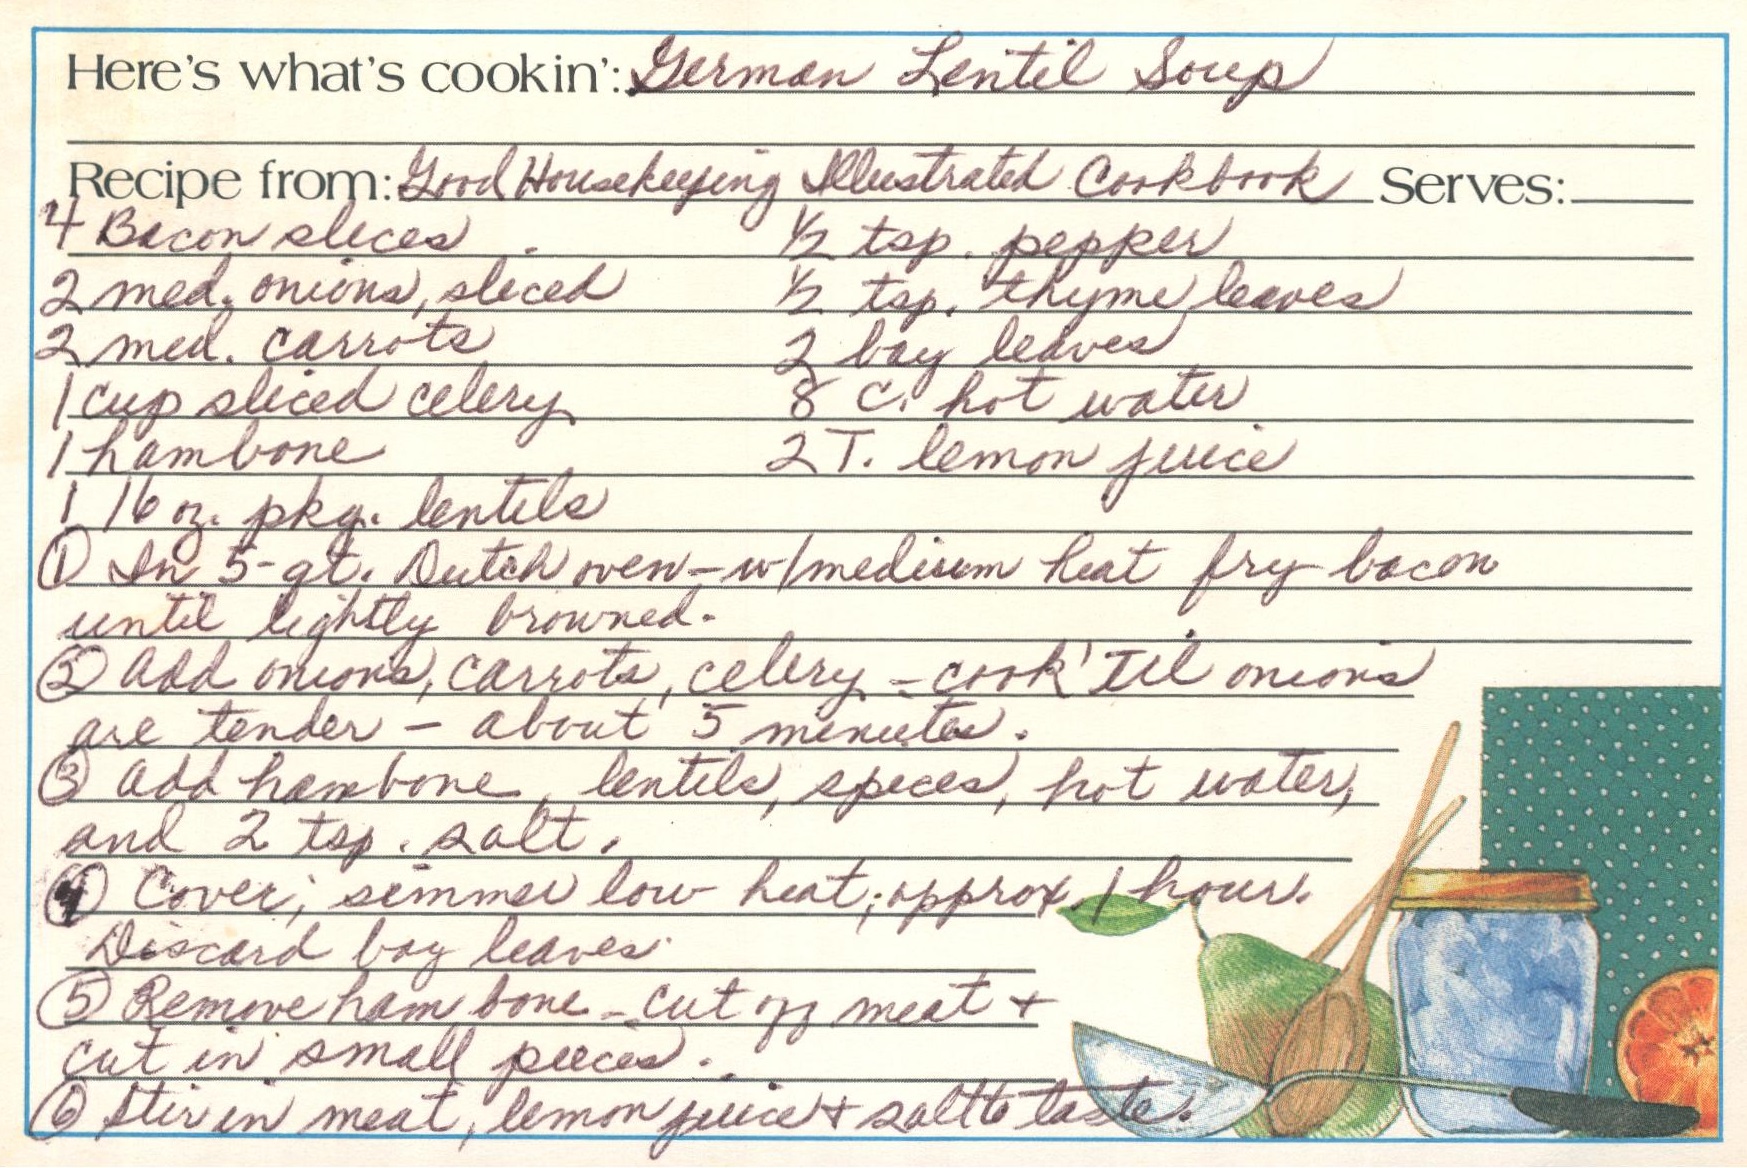 Here's what's cookin': German Lentil Soup
Recipe from: Good Housekeeping Illustrated Cookbook Serves:
4 Bacon slices 1/2 tsp. pepper
2 med. onions, sliced 1/2 tsp. thyme leaves
2 med. carrots 2 bay leaves
1 cup sliced celery 8 c. hot water
1 hambone 2 T. lemon juice
1 16 oz. pkg. lentils
① In 5-qt. Dutch oven - w/medium heat fry bacon
until lightly browned.
② Add onions, carrots, celery - cook 'til onions
are tender - about 5 minutes.
③ Add hambone, lentils, spices, hot water,
and 2 tsp. salt.
④ Cover; simmer low heat; approx. 1 hour.
Discard bay leaves.
⑤ Remove ham bone - cut off meat +
cut in small pieces.
⑥ Stir in meat, lemon juice + salt to taste.